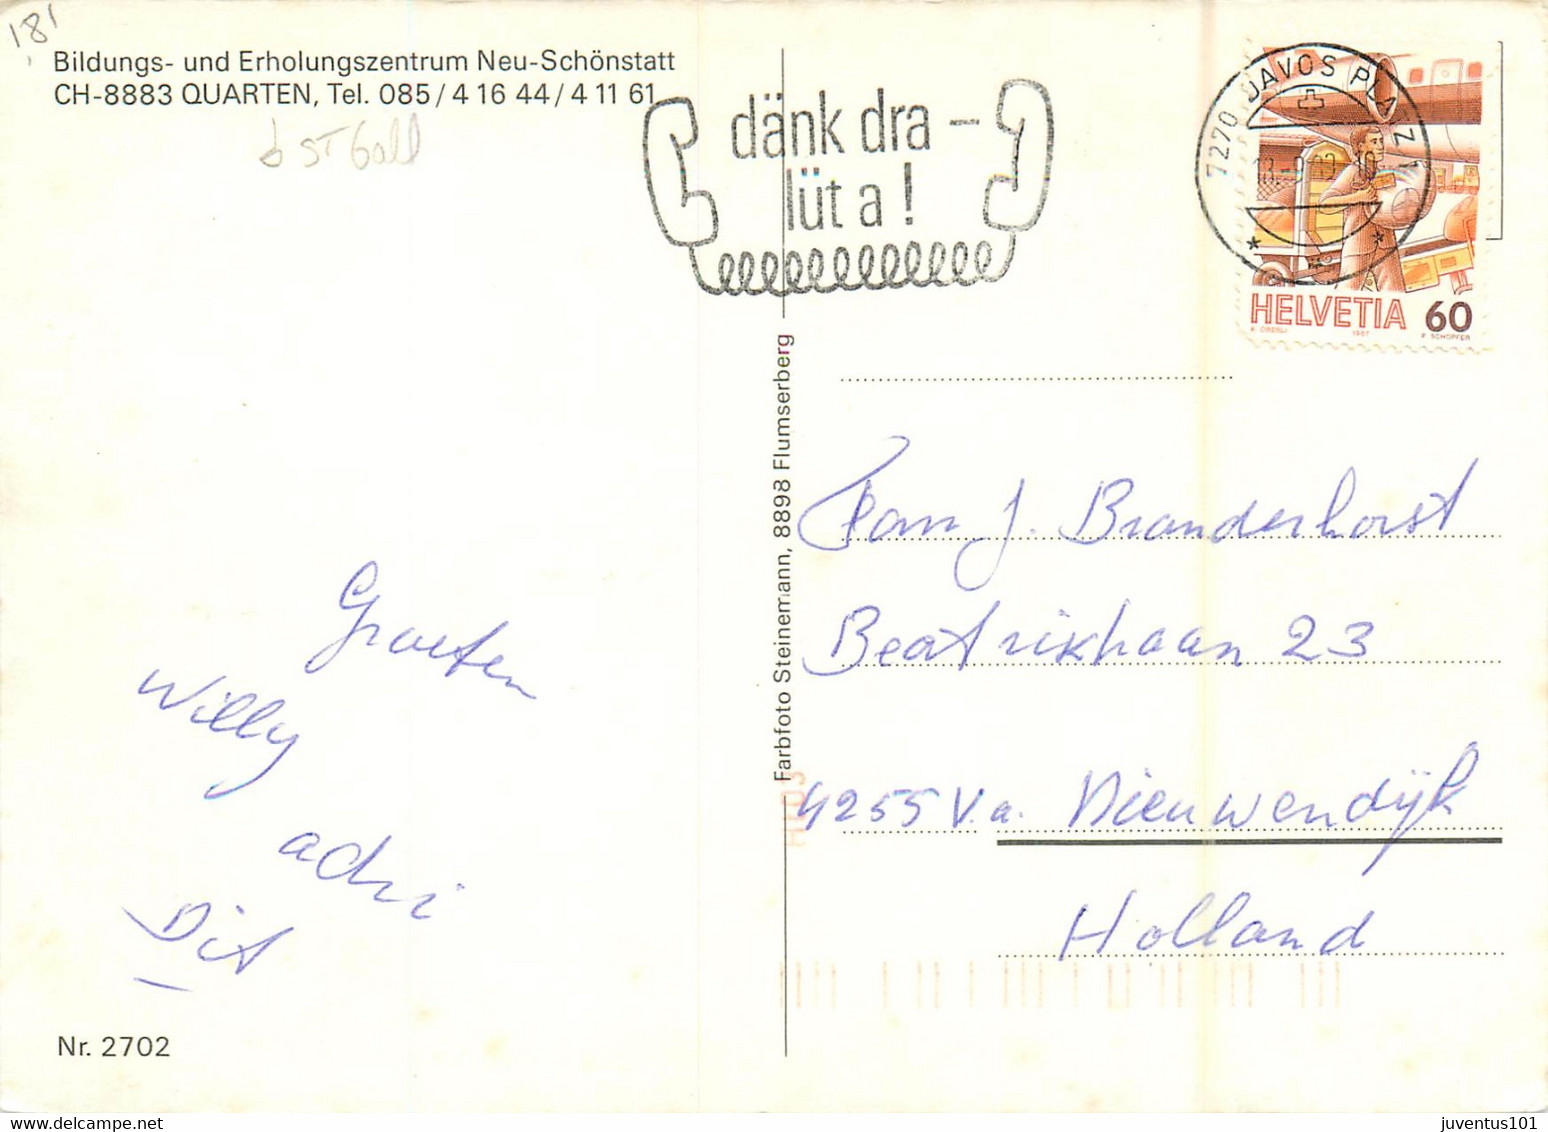 181
Bildungs- und Erholungszentrum Neu-Schönstatt
CH-8883 QUARTEN, Tel. 085/4 16 44/4 11 61
St Gall
dänk dra –
lüt a!
7270 DAVOS PLATZ 1
HELVETIA 60
K. OBERLI 1987 P. SCHOPFER
Farbfoto Steinemann, 8898 Flumserberg
Fam J. Branderhorst
Beatrixlaan 23
4255 V.a. Nieuwendijk
Holland
Groeten
Willy
adri
Dit
Nr. 2702
juventus101